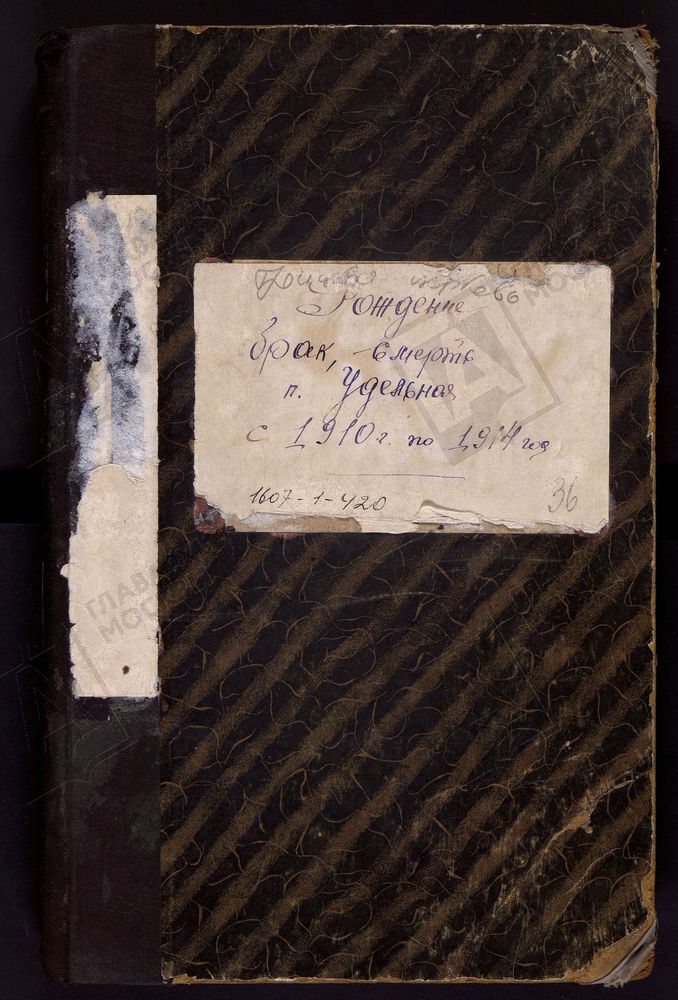 Троицкая церковь
Рождение
брак, смерть
п. Удельная
с 1910 г. по 1914 год
1607-1-420
36